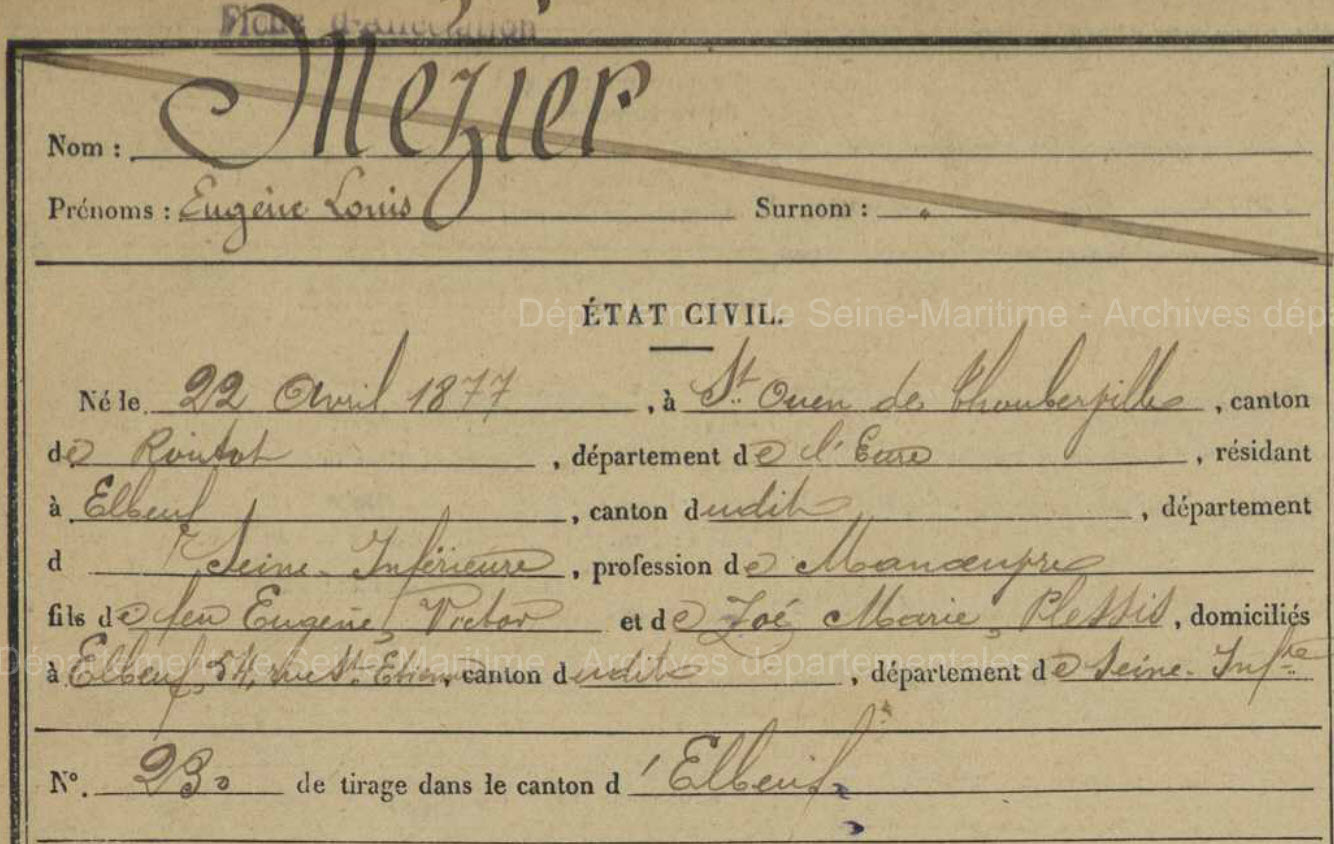 Fiche d'Affectation
Nom : Mézier
Prénoms : Eugène Louis Surnom : "
ÉTAT CIVIL.
Département de Seine-Maritime - Archives dép
Né le 22 Avril 1877, à St Ouen de Thouberville, canton
de Routot, département de l'Eure, résidant
à Elbeuf, canton dudit, département
d Seine-Inférieure, profession de Manœuvre
fils de feu Eugène Victor et de Zoé Marie Plessis, domiciliés
Département de Seine-Maritime - Archives départementales
à Elbeuf, 54, rue St Etienne, canton dudit, département de Seine-Infre
N°. 230 de tirage dans le canton d'Elbeuf